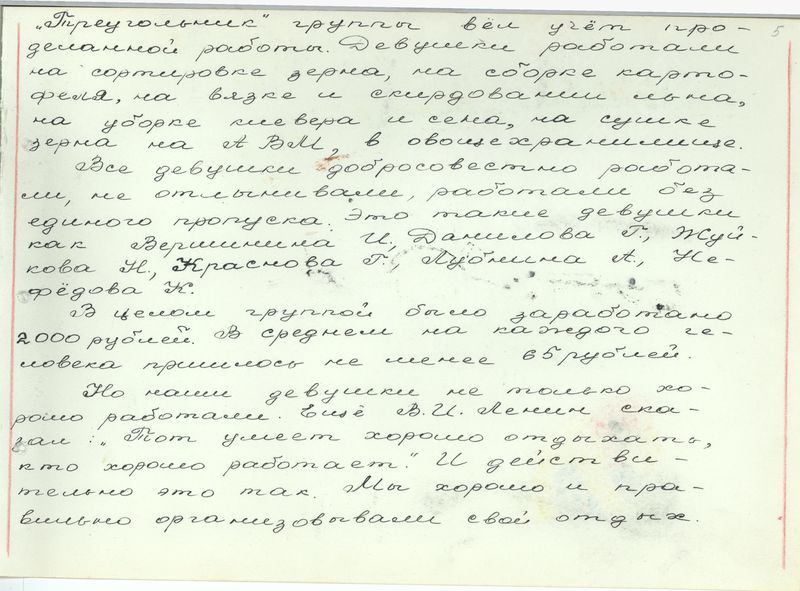 „Треугольник" группы вёл учёт про- 5
деланной работы. Девушки работали
на сортировке зерна, на сборке карто-
феля, на вязке и скирдовании льна,
на уборке клевера и сена, на сушке
зерна на АВМ, в овощехранилище.
Все девушки добросовестно работа-
ли, не отлынивали, работали без
единого пропуска. Это такие девушки
как Вершинина И., Данилова Г., Жуй-
кова Н., Краснова Г., Лубнина А., Не-
фёдова К.
В целом группой было заработано
2000 рублей. В среднем на каждого че-
ловека пришлось не менее 65 рублей.
Но наши девушки не только хо-
рошо работали. Ещё В.И. Ленин ска-
зал: „Тот умеет хорошо отдыхать,
кто хорошо работает." И действи-
тельно это так. Мы хорошо и пра-
вильно организовывали свой отдых.